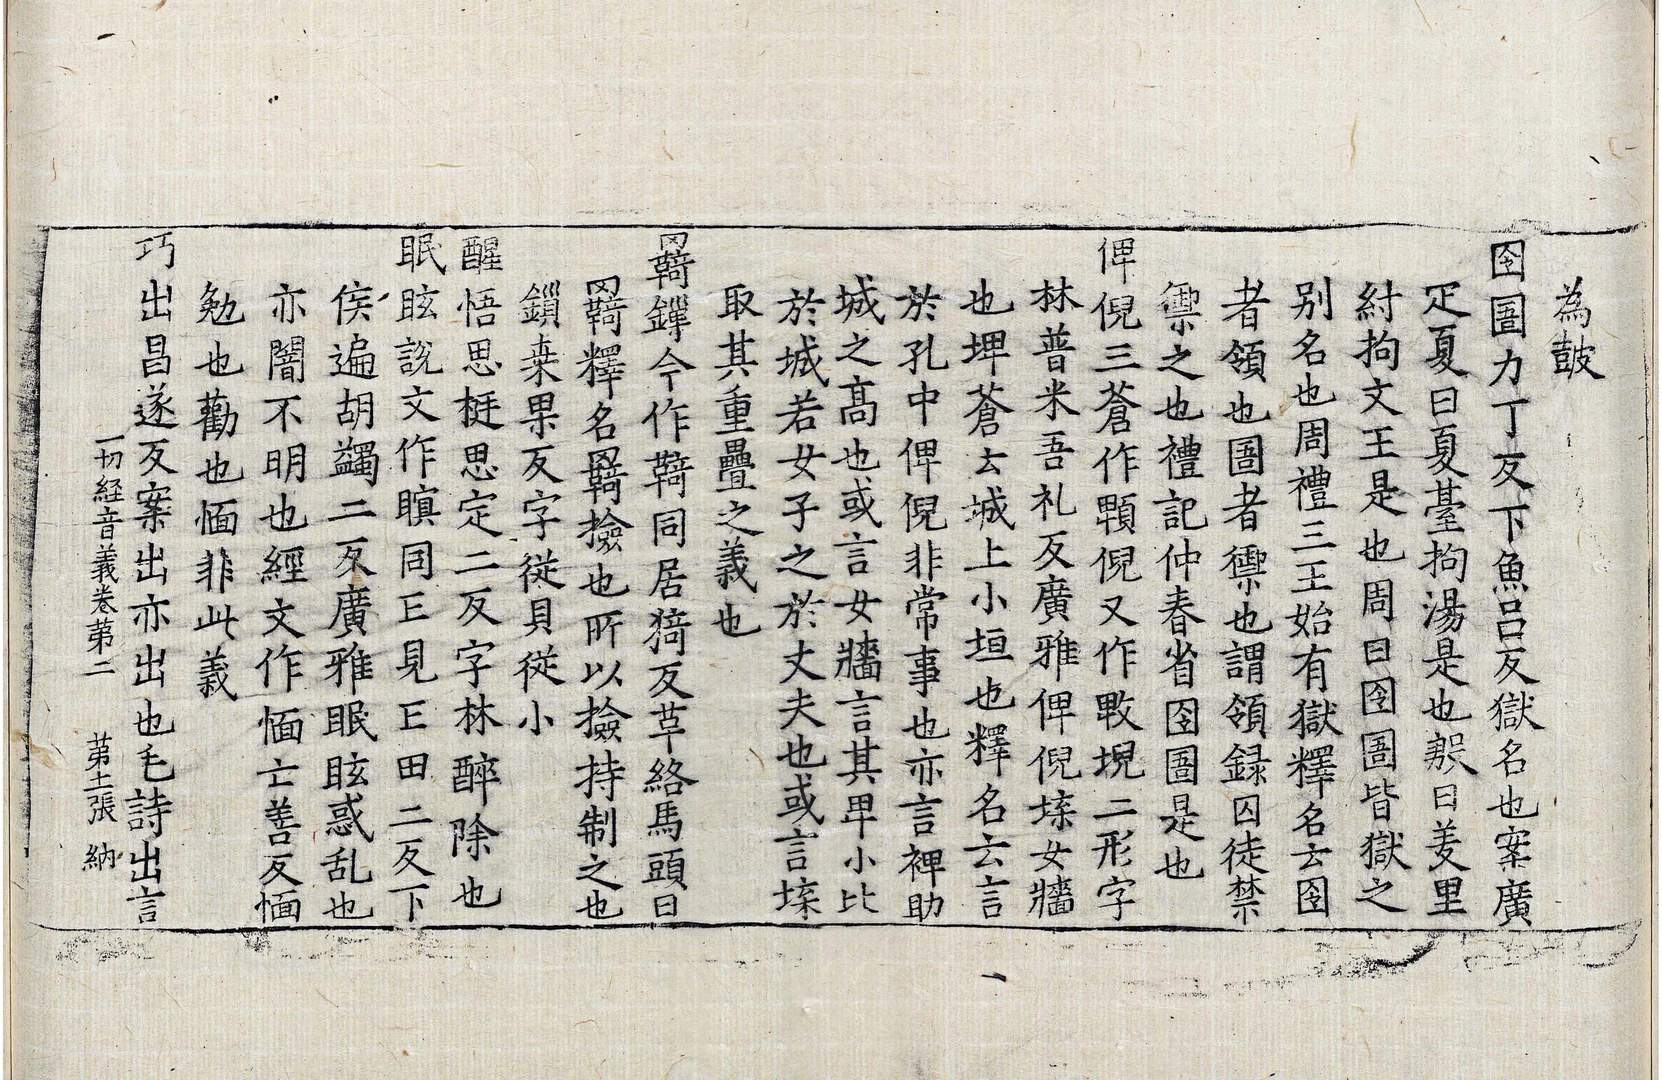 為皷
囹圄力丁反下魚吕反獄名也案廣
疋夏曰夏臺拘湯是也殷曰羑里
紂拘文王是也周曰囹圄皆獄之
别名也周禮三王始有獄釋名云囹
者領也圄者禦也謂領録囚徒禁
禦之也禮記仲春省囹圄是也
俾倪三蒼作顊倪又作㪏堄二形字
林普米吾礼反廣雅俾倪堞女牆
也埤蒼云城上小垣也釋名云言
於孔中俾倪非常事也亦言裨助
城之髙也或言女牆言其卑小比
於城若女子之於丈夫也或言堞
取其重疊之義也
羇鏁今作羇同居猗反草絡馬頭曰
羇釋名羇撿也所以撿持制之也
鎖桒果反字從貝從小
醒悟思挺思定二反字林醉除也
眠眩說文作瞑同𠤷見𠤷田二反下
侯遍胡蠲二反廣雅眠眩惑乱也
亦闇不明也經文作愐亡善反愐
勉也勸也愐非此義
巧出昌遂反案出亦出也毛詩出言
一切経音義卷苐二 苐十一張 納